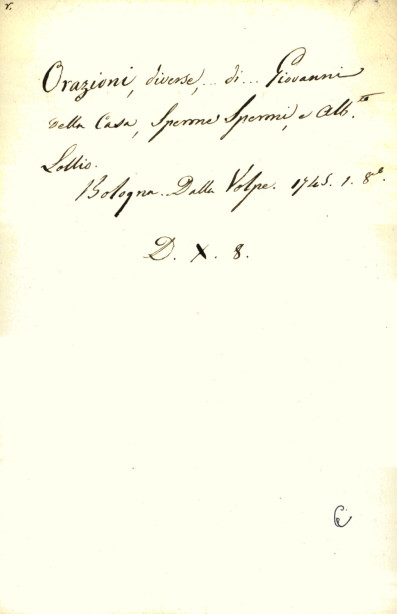 r.
Orazioni, diverse, ... di ... Giovanni
Della Casa, Sperone Speroni, e Alb.to
Lollio.
Bologna. Dalla Volpe. 1745. 1. 8º.
D. X. 8.